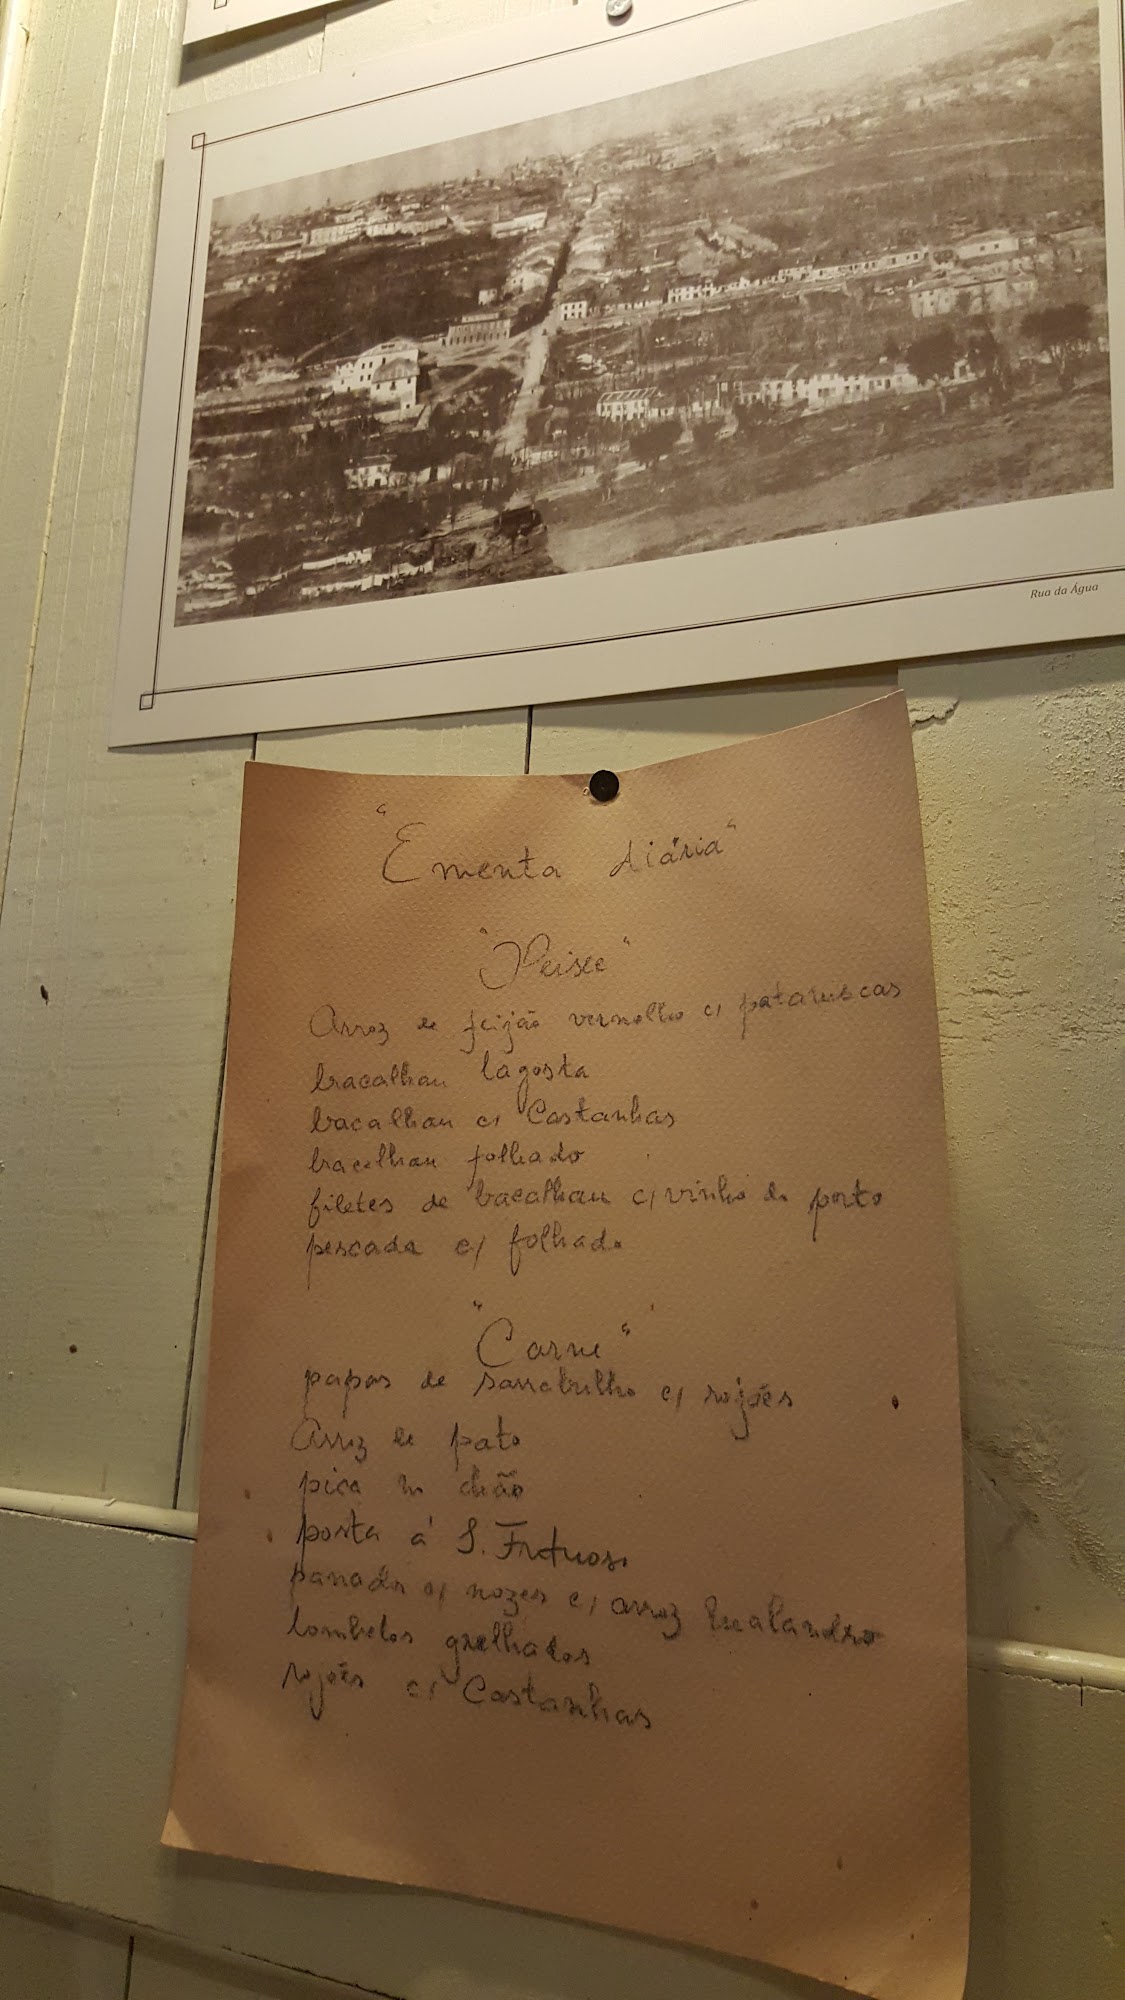 Rua da Água
"Ementa diária"
"Peixe"
Arroz de feijão vermelho c/ pataniscas
bacalhau lagosta
bacalhau c/ Castanhas
bacalhau folhado
filetes de bacalhau c/ vinho do porto
pescada c/ folhado
"Carne"
papas de sarrabulho c/ rojões
Arroz de pato
pica no chão
posta á S. Frutuoso
panado c/ nozes c/ arroz malandro
lombelos grelhados
rojões c/ Castanhas